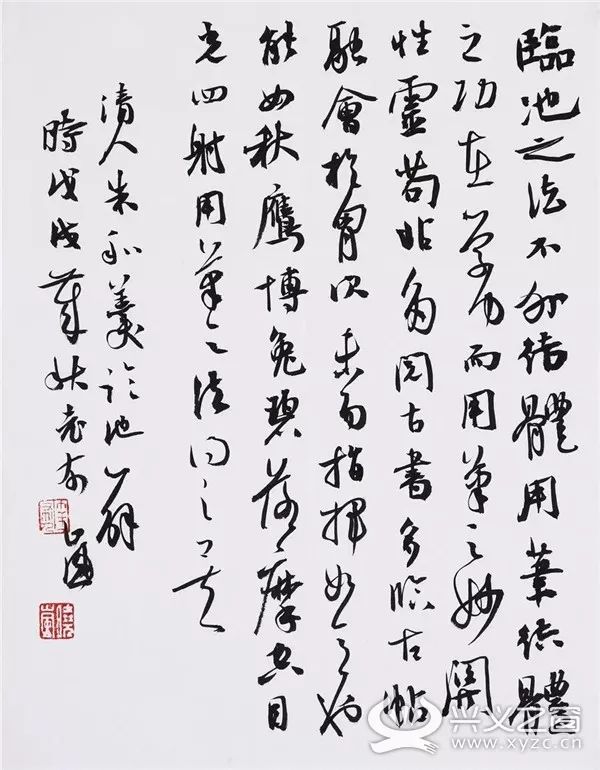 臨池之法不外結體用筆結體
之功在學力而用筆之妙關
性靈苟非多閱古書多臨古帖
融會於胸次未易指揮如意也
能如秋鷹博兔碧落摩空目
光四射用筆之法得之矣
清人朱和羹臨池心解
時戊戌
兴义之窗
www.xyzc.cn